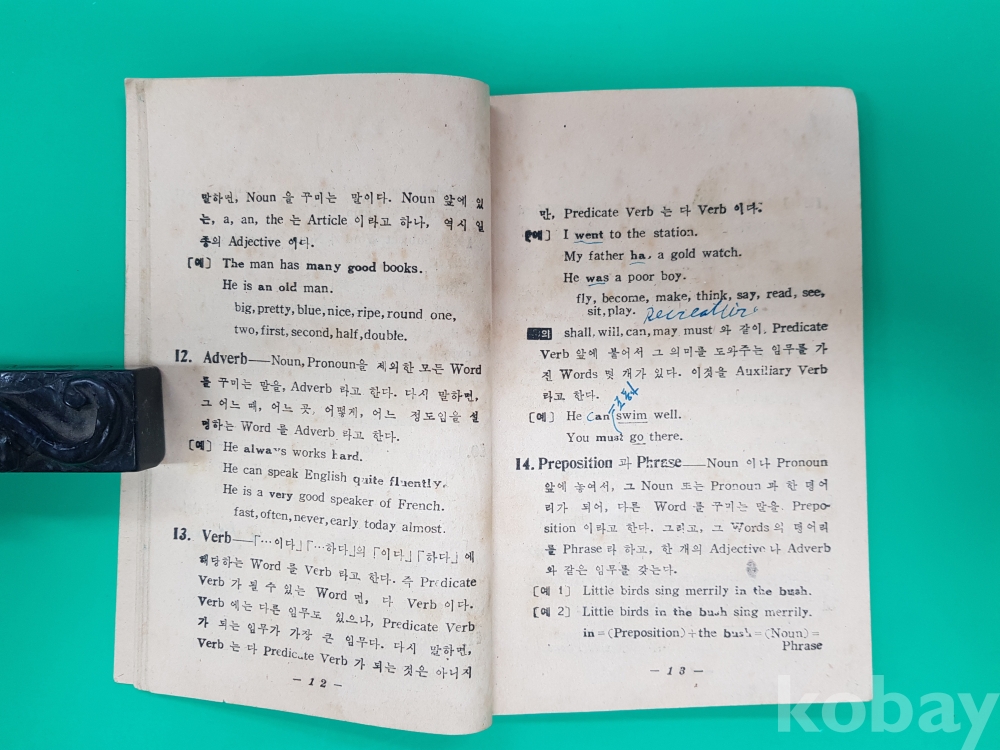 말하면, Noun 을 꾸미는 말이다. Noun 앞에 있
는, a, an, the 는 Article 이라고 하나, 역시 일
종의 Adjective 이다.
[예] The man has many good books.
He is an old man.
big, pretty, blue, nice, ripe, round one,
two, first, second, half, double.
12. Adverb——Noun, Pronoun을 제외한 모든 Word
를 꾸미는 말을, Adverb 라고 한다. 다시 말하면,
그 어느 때, 어느 곳, 어떻게, 어느 정도임을 설
명하는 Word 를 Adverb 라고 한다.
[예] He always works hard.
He can speak English quite fluently.
He is a very good speaker of French.
fast, often, never, early today almost.
13. Verb——「…이다」「…하다」의 「이다」「하다」에
해당하는 Word 를 Verb 라고 한다. 즉 Predicate
Verb 가 될 수 있는 Word 면, 다 Verb 이다.
Verb 에는 다른 임무도 있으나, Predicate Verb
가 되는 임무가 가장 큰 임무다. 다시 말하면,
Verb 는 다 Predicate Verb 가 되는 것은 아니지
— 12 —
만, Predicate Verb 는 다 Verb 이다.
[예] I went to the station.
My father ha. a gold watch.
He was a poor boy.
fly, become, make, think, say, read, see,
sit, play. recreation
의 shall, will, can, may must 와 같이, Predicate
Verb 앞에 붙어서 그 의미를 도와주는 임무를 가
진 Words 몇 개가 있다. 이것을 Auxiliary Verb
라고 한다.
[예] He can swim well.
You must go there.
14. Preposition 과 Phrase——Noun 이나 Pronoun
앞에 놓여서, 그 Noun 또는 Pronoun 과 한 덩어
리가 되어, 다른 Word 를 꾸미는 말을 Prepo-
sition 이라고 한다. 그리고, 그 Words 의 덩어리
를 Phrase 라 하고, 한 개의 Adjective 나 Adverb
와 같은 임무를 갖는다.
[예 1] Little birds sing merrily in the bush.
[예 2] Little birds in the bush sing merrily.
in=(Preposition)+the bush=(Noun)=
Phrase
— 13 —
kobay